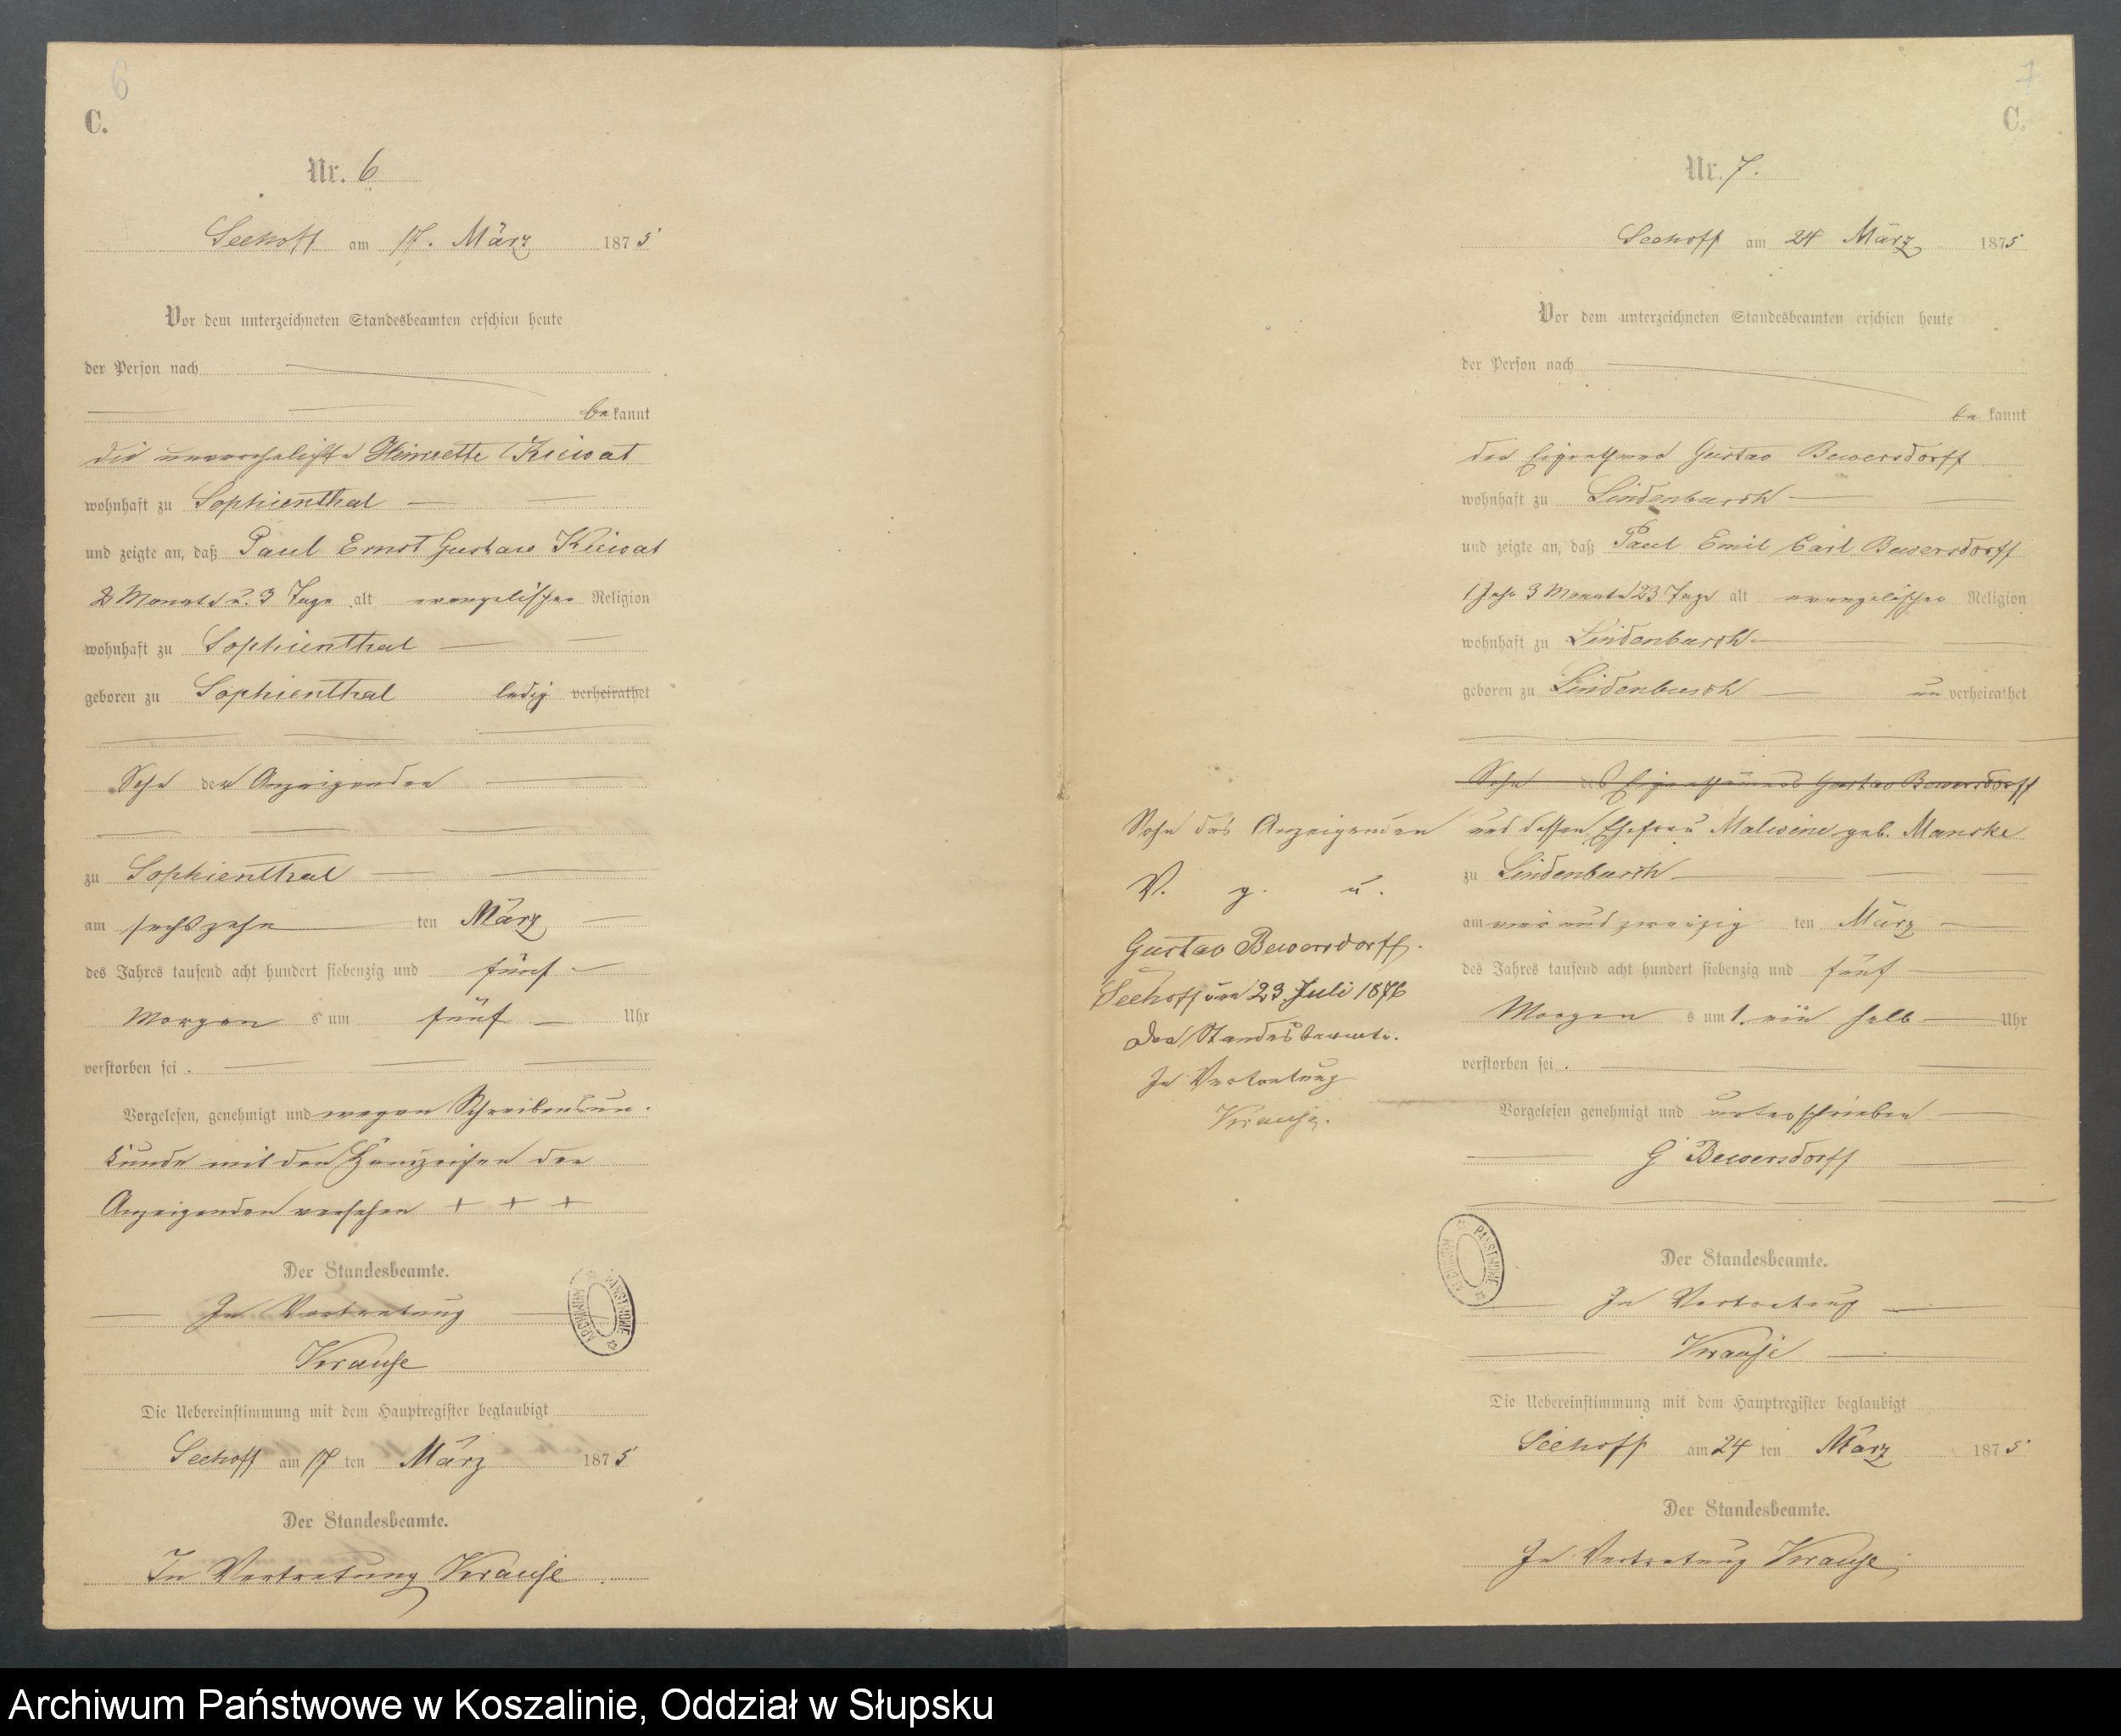 6
C.
Nr. 6
Seehoff am 17. März 1875
Vor dem unterzeichneten Standesbeamten erschien heute
der Person nach
bekannt
die unverehelichte Henriette Kuiwat
wohnhaft zu Sophienthal
und zeigte an, daß Paul Ernst Gustav Kuiwat
2 Monate u. 3 Tage alt evangelischer Religion
wohnhaft zu Sophienthal
geboren zu Sophienthal ledig verheirathet
Sohn der Anzeigenden
zu Sophienthal
am sechszehn ten März
des Jahres tausend acht hundert siebenzig und fünf
Morgen s um fünf Uhr
verstorben sei.
Vorgelesen, genehmigt und wegen Schreibensun-
kunde mit den Handzeichen der
Anzeigenden versehen + + +
Der Standesbeamte.
In Vertretung
Krause
ARCHIWUM PAŃSTWOWE
Die Uebereinstimmung mit dem Hauptregister beglaubigt
Seehoff am 17 ten März 1875
Der Standesbeamte.
In Vertretung Krause
7
C.
Nr. 7.
Seehoff am 24 März 1875
Vor dem unterzeichneten Standesbeamten erschien heute
der Person nach
bekannt
der Eigenthümer Gustav Bewersdorff
wohnhaft zu Lindenbusch
und zeigte an, daß Paul Emil Carl Bewersdorff
1 Jahr 3 Monate 23 Tage alt evangelischer Religion
wohnhaft zu Lindenbusch
geboren zu Lindenbusch unverheirathet
Sohn des Eigenthümers Gustav Bewersdorff
und dessen Ehefrau Malwine geb. Manske
zu Lindenbusch
am vier und zwanzig ten März
des Jahres tausend acht hundert siebenzig und fünf
Morgen s um 1. ein halb Uhr
verstorben sei.
Vorgelesen genehmigt und unterschrieben
G Bewersdorff
Der Standesbeamte.
In Vertretung
Krause
ARCHIWUM PAŃSTWOWE
Die Uebereinstimmung mit dem Hauptregister beglaubigt
Seehoff am 24 ten März 1875
Der Standesbeamte.
In Vertretung Krause
Sohn des Anzeigenden
V. g. u.
Gustav Bewersdorff.
Seehoff den 23 Juli 1876
Der Standesbeamte.
In Vertretung
Krause.
Archiwum Państwowe w Koszalinie, Oddział w Słupsku